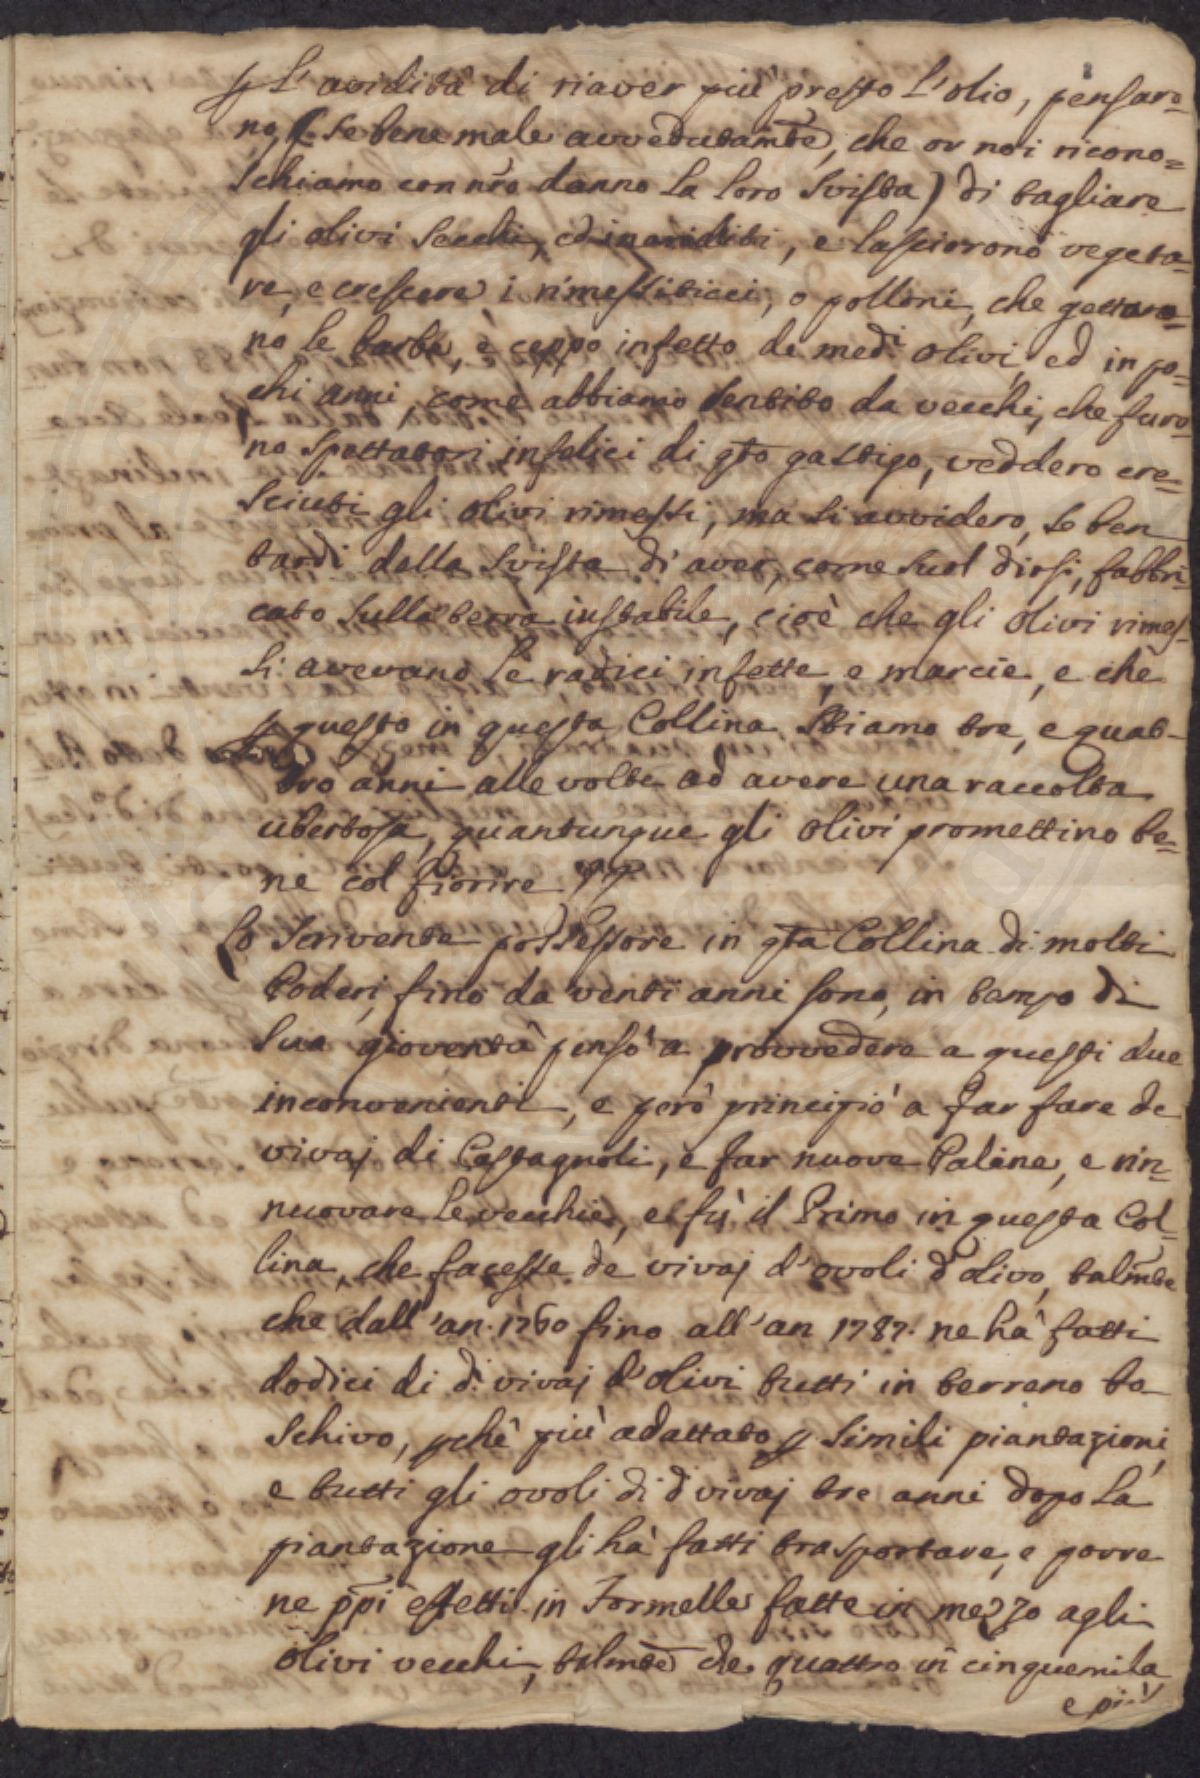 8
p L'avidità di riaver più presto L'olio, pensaro-
no, (se bene male avvedutamte, che or noi ricono=
schiamo con nro danno La loro svista) di tagliare
gli olivi secchi, ed inariditi, e lasciorono vegeta-
re, e crescere i rimessiticci, o polloni, che gettaro=
no le barbe, e ceppo infetto de medi olivi, ed in po=
chi anni, come abbiamo sentito da vecchi, che furo-
no spettatori infelici di qto gastigo, veddero cre=
sciuti gli olivi rimessi, ma si avvidero, se ben
tardi della svista di aver, come suol dirsi, fabbri
cato sulla terra instabile, cioè che gli olivi rimes-
si avevano le radici infette, e marcie, e che
p questo in questa Collina Stiamo tre, e quat-
tro anni alle volte ad avere una raccolta
ubertosa, quantunque gli olivi promettino be=
ne col fiorire
Lo Scrivente possessore in qta Collina di molti
Poderi, fino da venti anni sono, in tempo di
sua gioventù pensò a provvedere a questi due
inconvenienti, e però principiò a far fare de
vivaj di Castagnoli, e far nuove Paline, e rin=
nuovare le vecchie, e fù il Primo in questa Col=
lina, che facesse de vivaj d'ovoli d'olivo, talmte
che dall'an. 1760 fino all'an 1787. ne hà fatti
dodici di d. vivaj d'olivi tutti in terreno bo
schivo, pchè più adattato p simili piantazioni,
e tutti gli ovoli di d. vivaj tre anni dopo La
piantazione gli hà fatti trasportare, e porre
ne ppi effetti in Formelle fatte in mezzo agli
olivi vecchi, talmte che quattro in cinquemila,
e più